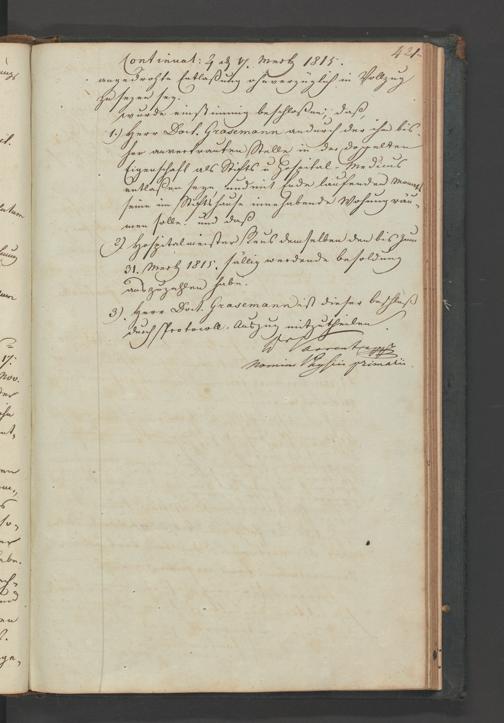 421.
Continuat: 4 des 17. Merz 1815.
angedrohte Entlaßung ohnverzüglich in Vollzug
zu sezen sey.
wurde einstimmig beschloßen; daß,
1.) Herr Doct. Grasemann andurch der ihm bis-
her anvertrauten Stelle in der doppelten
Eigenschaft als Stifts u. Hospital-Medicus
entlaßen seye und mit Ende laufenden Monaths
seine im Stiftshause innehabende Wohnung räu-
men solle. und daß
2) Hospitalmeister Reus demselben den bis zum
31. Merz 1815. fällig werdende besoldung
auszuzahlen habe.
3). Herr Doct. Grasemann ist dieser beschluß
durch Protocoll-Auszug mitzutheilen.
Dr Varrentrapp
nomine Physici primarii

17:
Nov.